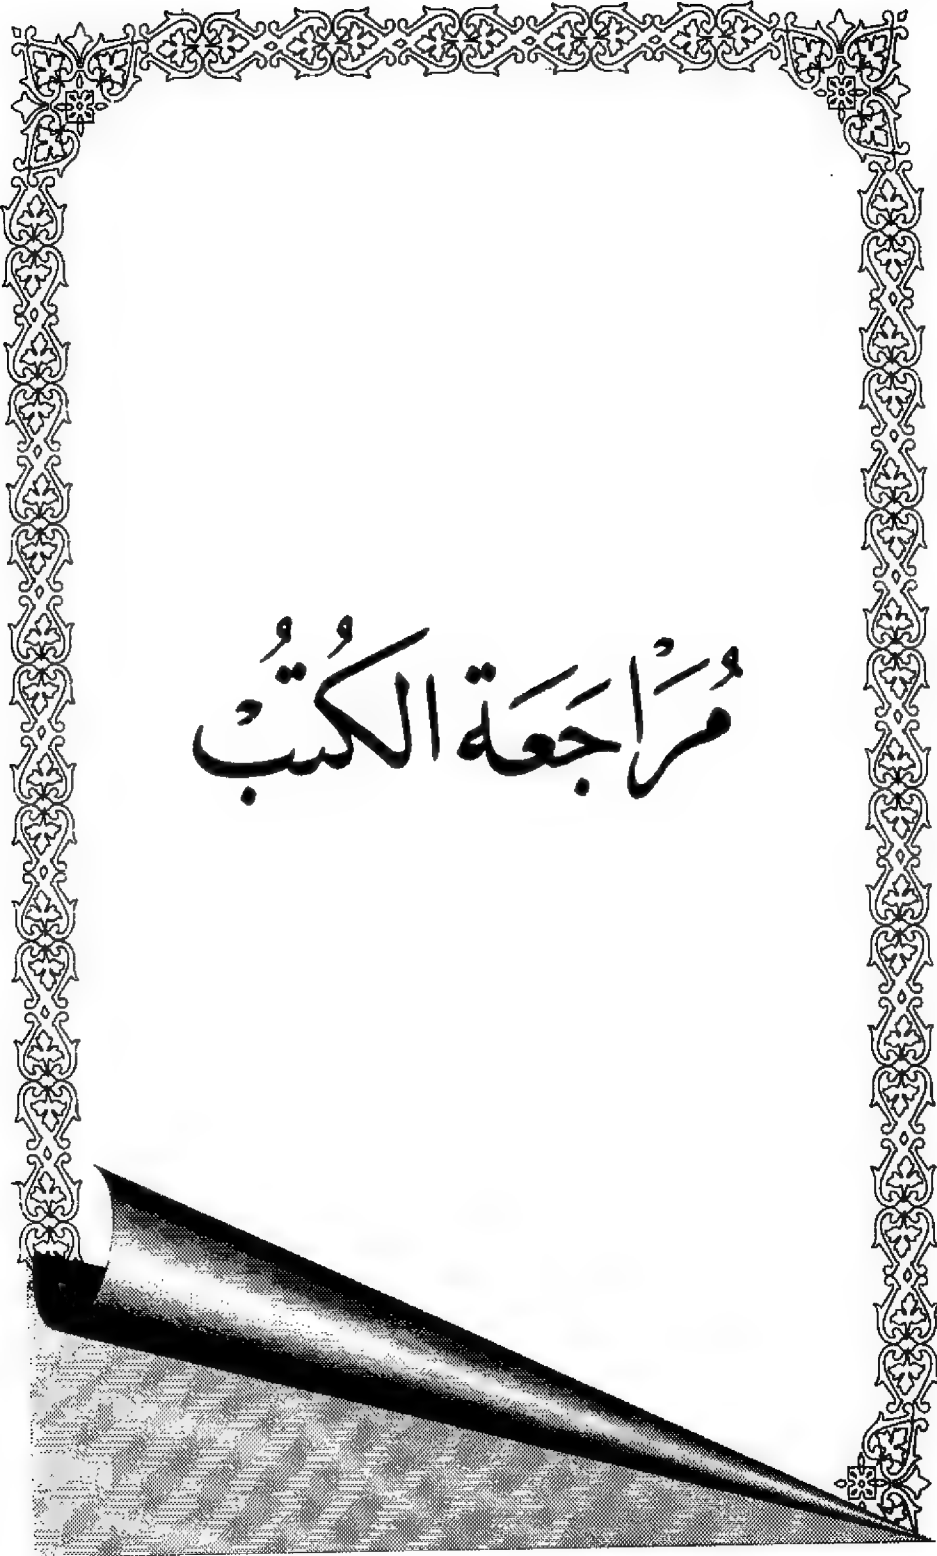 مُرَاجَعَة الكُتُبْ